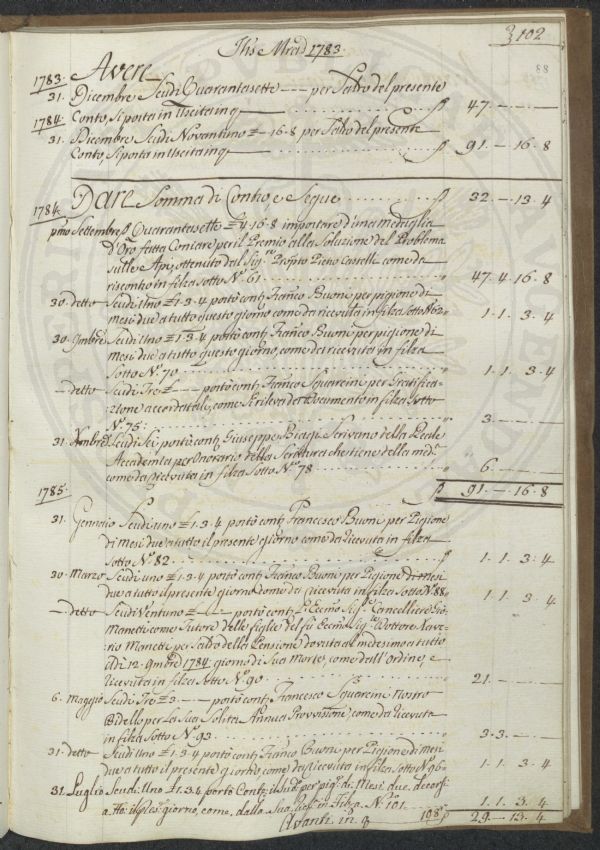 102
88
Jhs Mrad 1783
Avere
1783. 31. Dicembre Scudi Quarantasette --- per Saldo del presente
Conto, si porta in Uscita in q 47. -
1784. 31. Dicembre Scudi Novantuno - 16 - 8 per Saldo del presente
Conto, si porta in Uscita in q 91. - 16. 8
1784. Dare Somma di Contro, e Segue 32. - 13. 4
pmo Settembre Quarantasette 4. 16. 8 importare d'una medaglia
d'Oro fatta Coniare per il Premio alla Soluzione del Problema
sulle Api, ottenuto dal Sigre Propto Pieno Castelli come da
riscontro in filza sotto No. 61 47. 4. 16. 8
30. detto Scudi Uno 1. 3. 4 portò cont. Franco Buoni per pigione di
mesi due a tutto questo giorno come da ricevuta in filza sotto No 62 1. 1. 3. 4
30. 9mbre Scudi Uno 1. 3. 4 portò cont. Franco Buoni per pigione di
mesi due a tutto questo giorno, come da ricevuta in filza
Sotto No. 70 1. 1. 3. 4
- detto Scudi Tre --- portò cont. Franco Squarcini per Gratifica-
zione accordatali, come si rileva da Documento in filza sotto
No. 75 3. -
31. Xmbre Scudi Sei portò cont. Giuseppe Biagi Scrivano della Reale
Accademia per Onorario della Scrittura che tiene della mede.
come da ricevuta in filza Sotto No. 78 6. -
91. - 16. 8
1785.
31. Gennaio Scudi uno 1. 3. 4 portò cont. Francesco Buoni per Pigione
di mesi due a tutto il presente giorno come da ricevuta in filza
Sotto No. 82 1. 1. 3. 4
30. Marzo Scudi uno 1. 3. 4 portò cont. Franco Buoni per Pigione di mesi
due a tutto il presente giorno come da ricevuta in filza Sotto No. 88 1. 1. 3. 4
- detto Scudi Ventuno --- portò cont. L'Eccmo Sigre Cancelliere Gio.
Manetti come Tutore delle figlie del fù Eccmo Sigre Dottore Xave-
rio Manetti per Saldo della Pensione dovuta al medesimo a tutto
dì 12. 9mbre 1784. giorno di Sua Morte, come dall'Ordine, e
Ricevuta in filza sotto No. 90 21. -
6. Maggio Scudi Tre 3. --- portò cont. Francesco Squarcini Nostro
Bidello per La sua Solita Annua Provvisione, come da Ricevuta
in filza sotto No. 93 3. 3. -
31. detto Scudi Uno 1. 3. 4 portò cont. Franco Buoni per Pigione di mesi
due a tutto il presente giorno, come da Ricevuta in filza sotto No. 96 1. 1. 3. 4
31. Luglio Scudi Uno 1. 3. 4 portò Cont. il Sudo. per pigo. di Mesi due decorsi
a tto. il pres. giorno, come dalla Sua Ricev. in Filza No. 101 1. 1. 3. 4
Avanti in q 108 29. - 13. 4